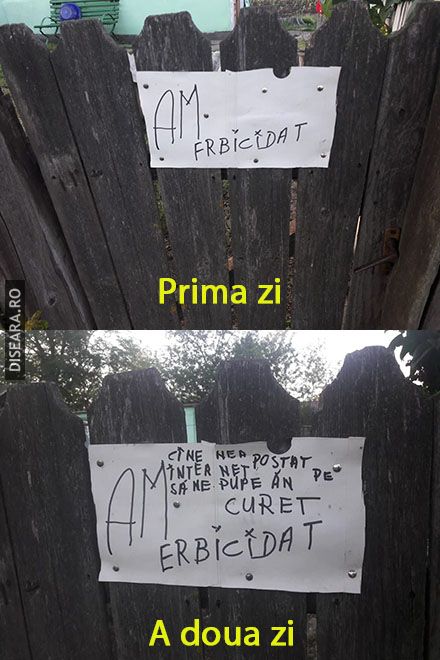 AM
ERBICIDAT
Prima zi
DISEARA.RO
CINE NEA POSTAT
INTERNET PE
SĂ NE PUPE ĂN
CURET
AM
ERBICIDAT
A doua zi